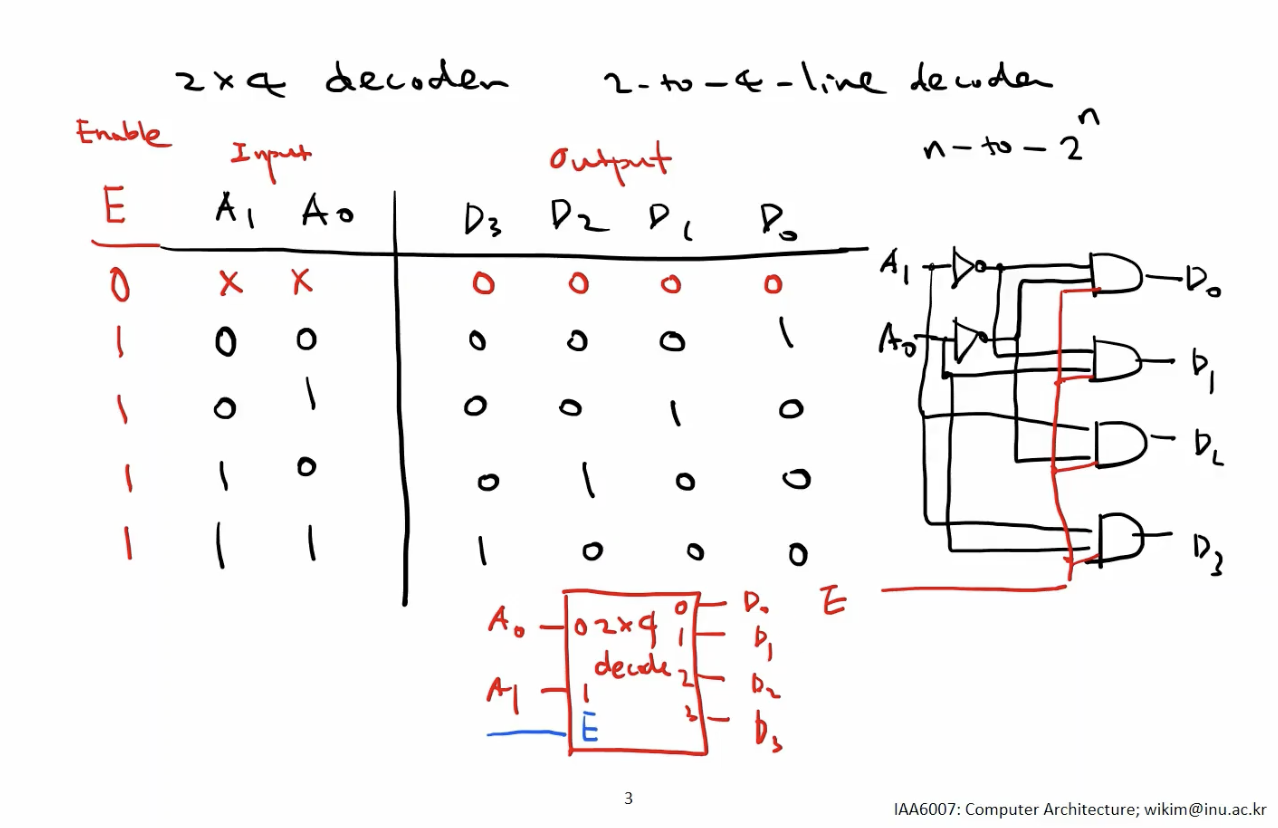 2x4 decoder 2-to-4-line decoder
n-to-2^n
Enable Input Output
E A1 A0 D3 D2 D1 D0
0 x x 0 0 0 0
1 0 0 0 0 0 1
1 0 1 0 0 1 0
1 1 0 0 1 0 0
1 1 1 1 0 0 0
A1 D0
A0 D1
D2
D3
E
A0 0 2x4 0 D0
1 D1
decode 2 D2
A1 1
E 3 D3
3
IAA6007: Computer Architecture; wikim@inu.ac.kr